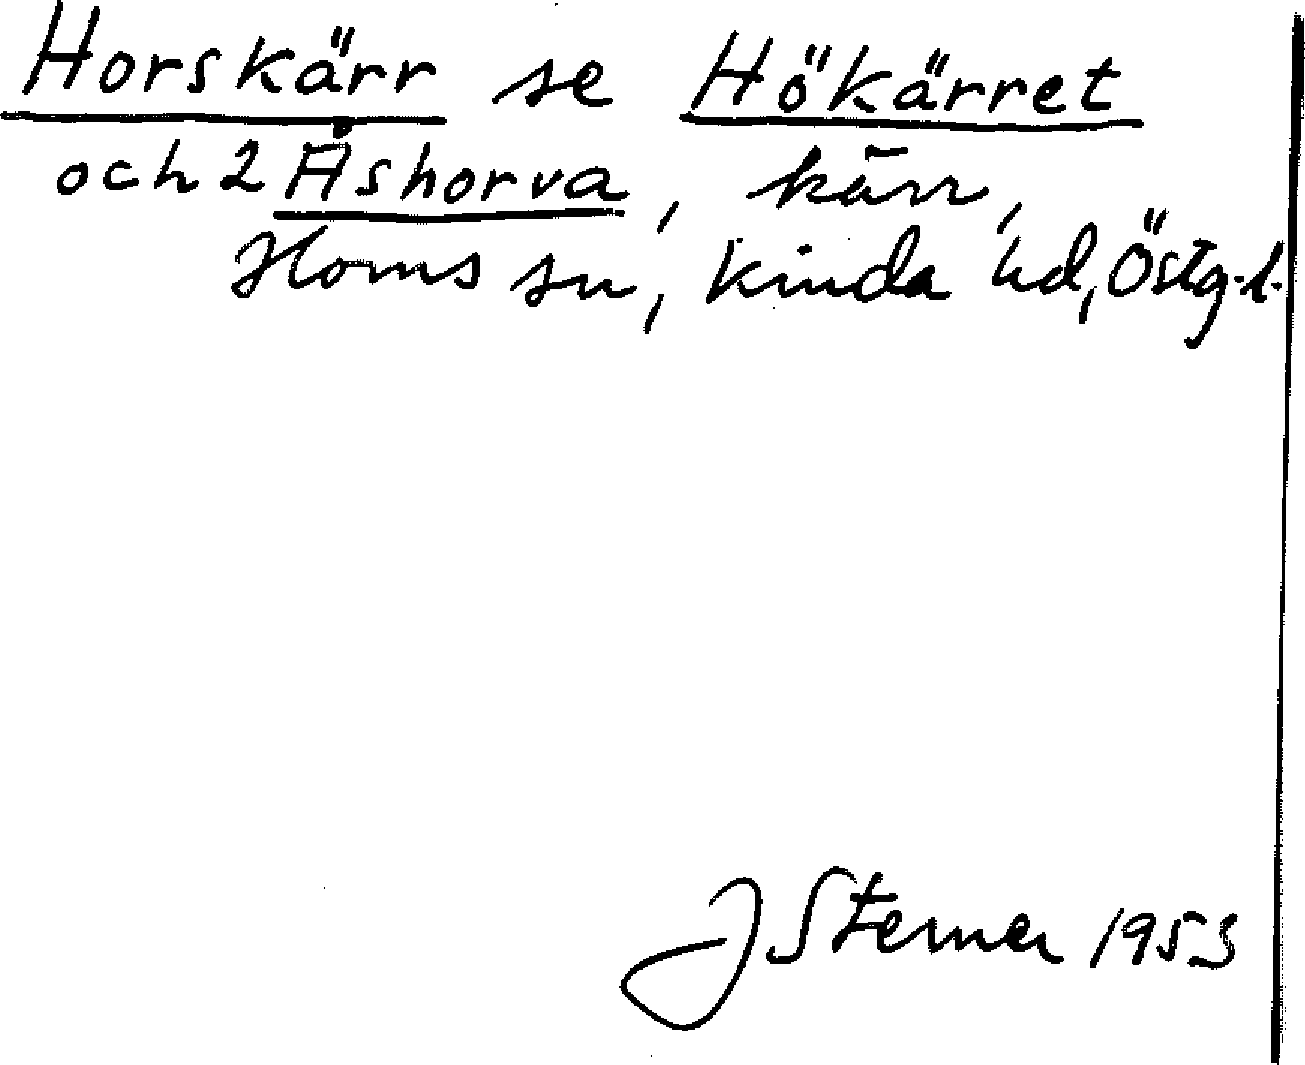 Horskärr se Hökärret
och 2 Åshorva, kärr,
Horns sn, Kinda hd, Östg.l.
J Sterner 1953